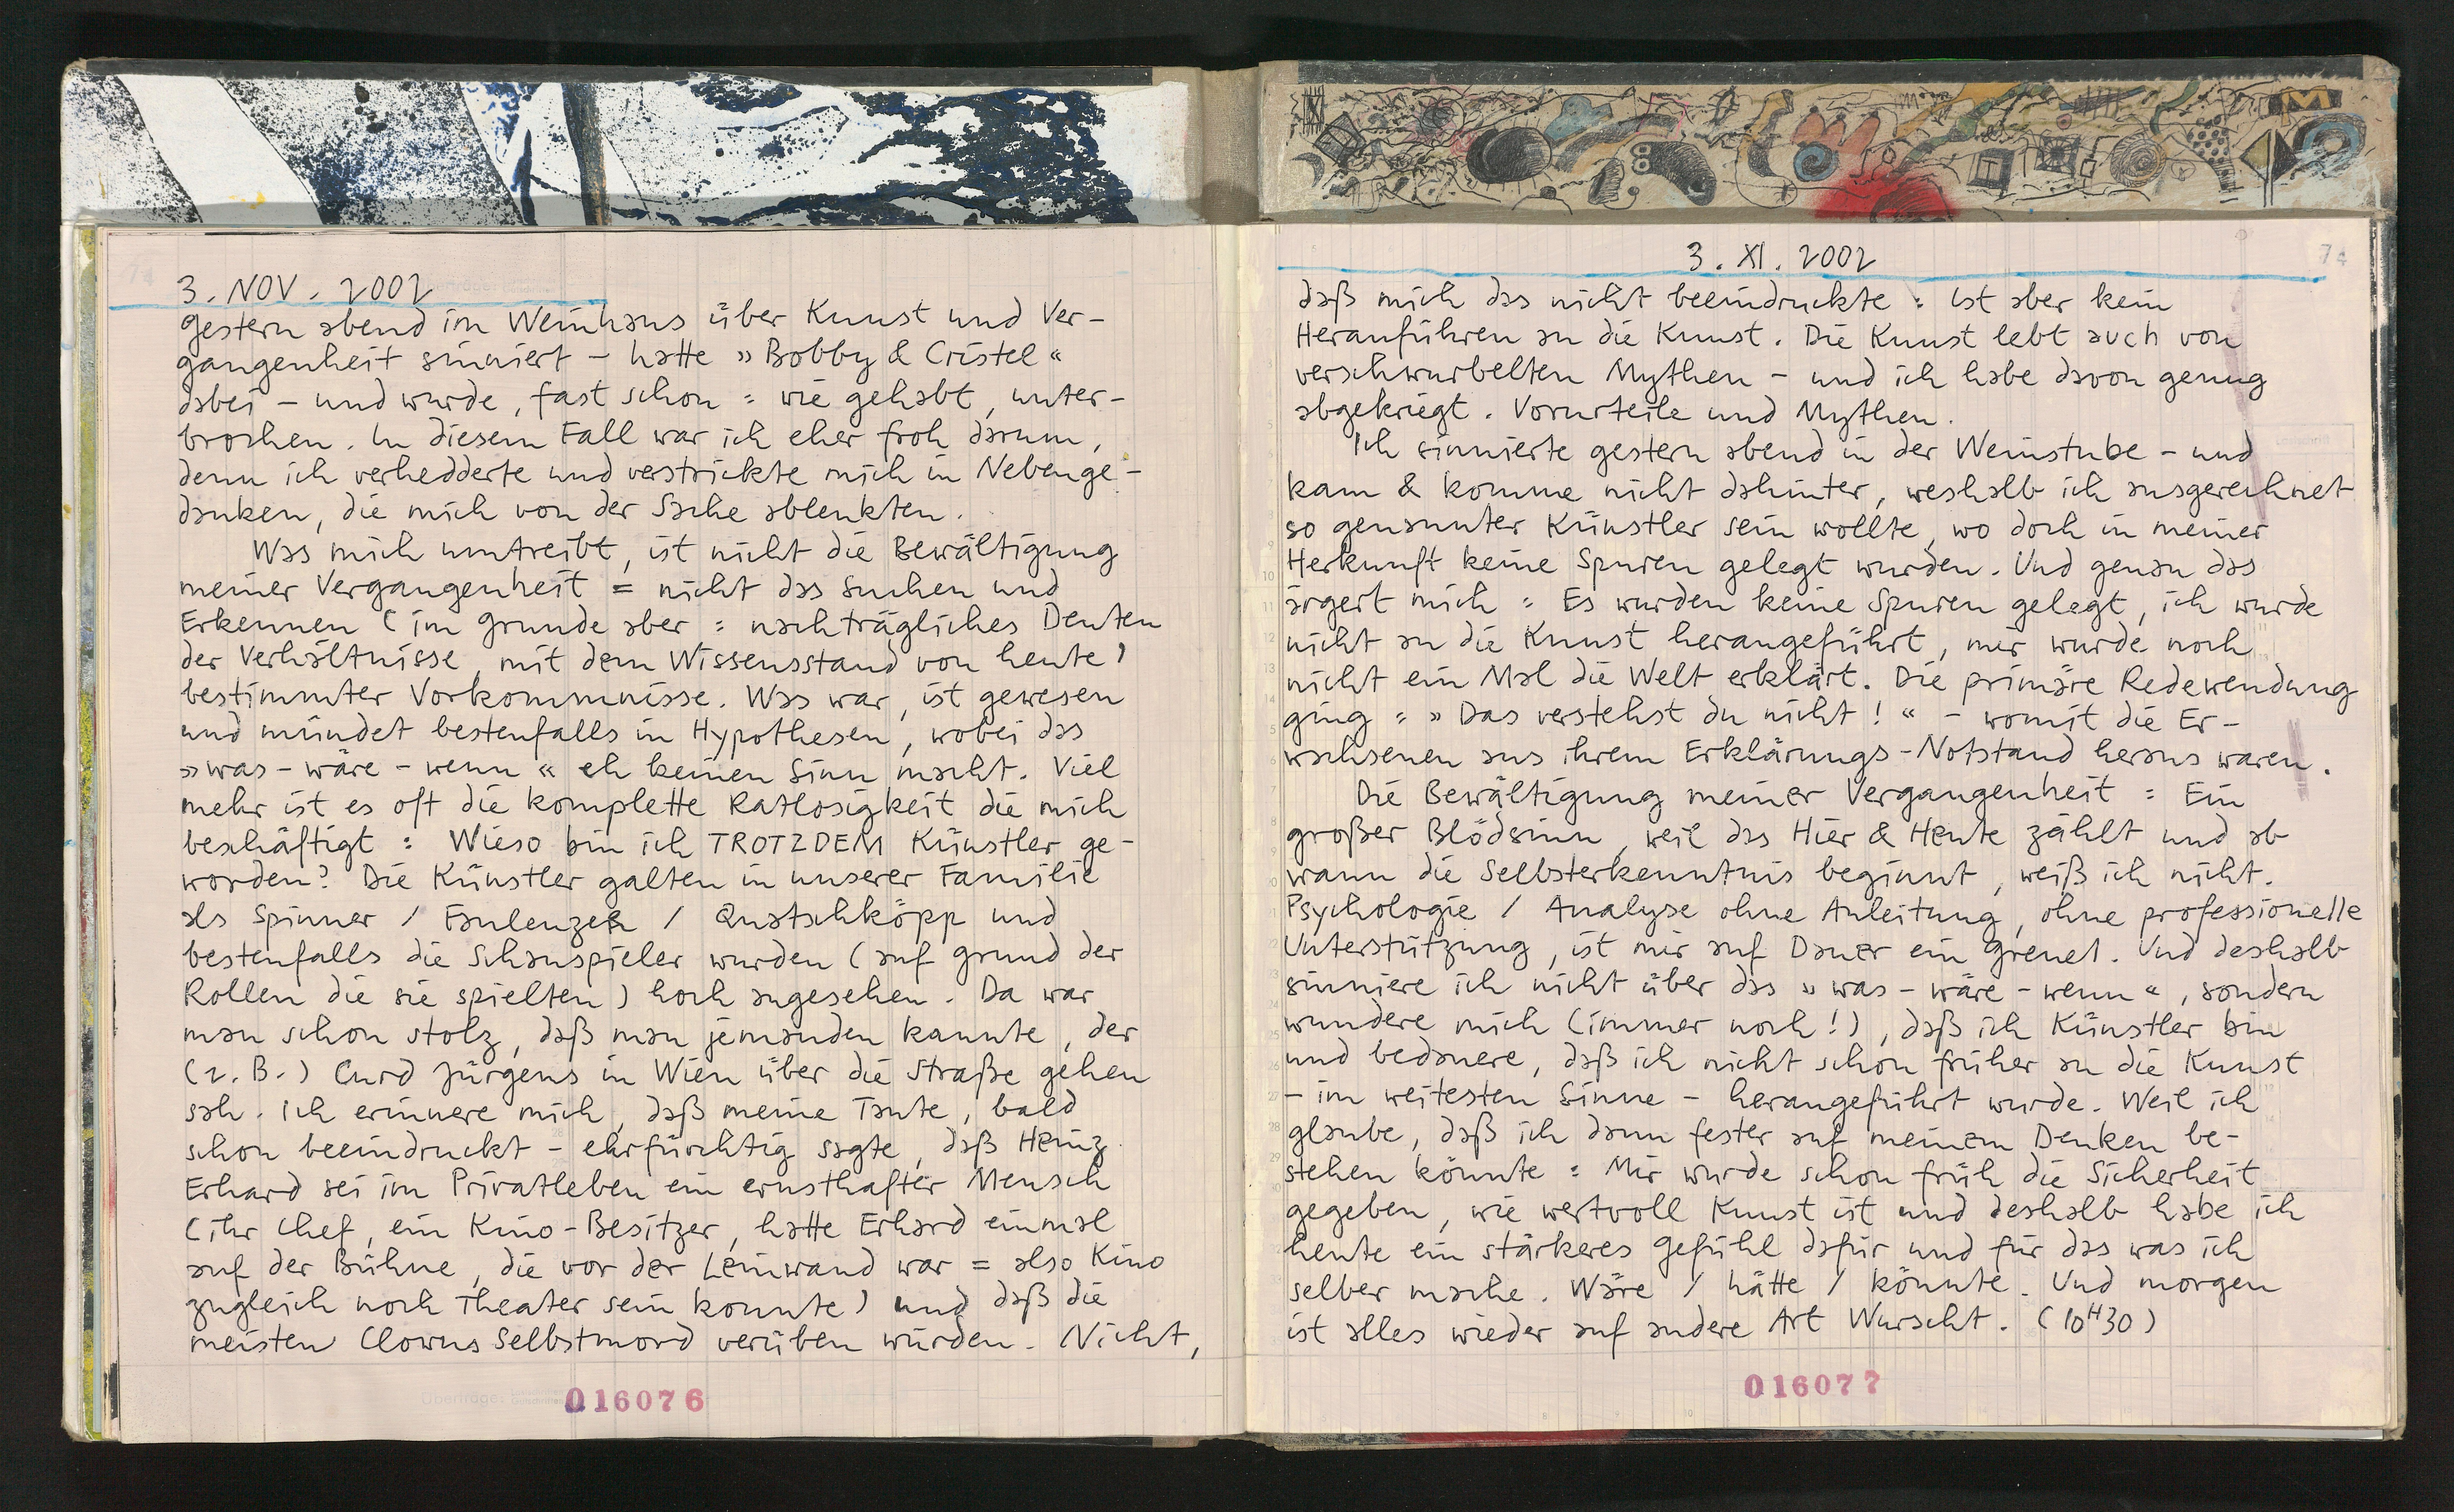 3. NOV. 2002
gestern abend im Weinhaus über Kunst und Ver-
gangenheit sinniert – hatte »Bobby & Cristel«
dabei – und wurde, fast schon : wie gehabt, unter-
brochen. In diesem Fall war ich eher froh darum,
denn ich verhedderte und verstrickte mich in Nebenge-
danken, die mich von der Sache ablenkten.
Was mich umtreibt, ist nicht die Bewältigung
meiner Vergangenheit = nicht das Suchen und
Erkennen (im Grunde aber : nachträgliches Deuten
der Verhältnisse, mit dem Wissensstand von heute)
bestimmter Vorkommnisse. Was war, ist gewesen
und mündet bestenfalls in Hypothesen, wobei das
»was-wäre-wenn« eh keinen Sinn macht. Viel
mehr ist es oft die komplette Ratlosigkeit die mich
beschäftigt : Wieso bin ich TROTZDEM Künstler ge-
worden? Die Künstler galten in unserer Familie
als Spinner / Faulenzer / Quatschköpp und
bestenfalls die Schauspieler wurden (auf grund der
Rollen die sie spielten) hoch angesehen. Da war
man schon stolz, daß man jemanden kannte, der
(z.B.) Curd Jürgens in Wien über die Straße gehen
sah. Ich erinnere mich, daß meine Tante, bald
schon beeindruckt – ehrfürchtig sagte, daß Heinz
Erhard sei im Privatleben ein ernsthafter Mensch
(ihr Chef, ein Kino-Besitzer, hatte Erhard einmal
auf der Bühne, die vor der Leinwand war = also Kino
zugleich noch Theater sein konnte) und daß die
meisten Clowns Selbstmord verüben würden. Nicht,
016076
3. XI. 2002
74
daß mich das nicht beeindruckte : ist aber kein
Heranführen an die Kunst. Die Kunst lebt auch von
verschwurbelten Mythen – und ich habe davon genug
abgekriegt. Vorurteile und Mythen.
Ich sinnierte gestern abend in der Weinstube – und
kam & komme nicht dahinter, weshalb ich ausgerechnet
so genannter Künstler sein wollte, wo doch in meiner
Herkunft keine Spuren gelegt wurden. Und genau das
ärgert mich : Es wurden keine Spuren gelegt, ich wurde
nicht an die Kunst herangeführt, mir wurde noch
nicht ein Mal die Welt erklärt. Die primäre Redewendung
ging : »Das verstehst du nicht!« – womit die Er-
wachsenen aus ihrem Erklärungs-Notstand heraus waren.
Die Bewältigung meiner Vergangenheit : Ein
großer Blödsinn, weil das Hier & Heute zählt und ab
wann die Selbsterkenntnis beginnt, weiß ich nicht.
Psychologie / Analyse ohne Anleitung, ohne professionelle
Unterstützung, ist mir auf Dauer ein Greuel. Und deshalb
sinniere ich nicht über das »was-wäre-wenn«, sondern
wundere mich (immer noch!), daß ich Künstler bin
und bedauere, daß ich nicht schon früher an die Kunst
– im weitesten Sinne – herangeführt wurde. Weil ich
glaube, daß ich dann fester auf meinem Denken be-
stehen könnte : Mir wurde schon früh die Sicherheit
gegeben, wie wertvoll Kunst ist und deshalb habe ich
heute ein stärkeres Gefühl dafür und für das was ich
selber mache. Wäre / hätte / könnte. Und morgen
ist alles wieder auf andere Art Wurscht. (10H30)
016077